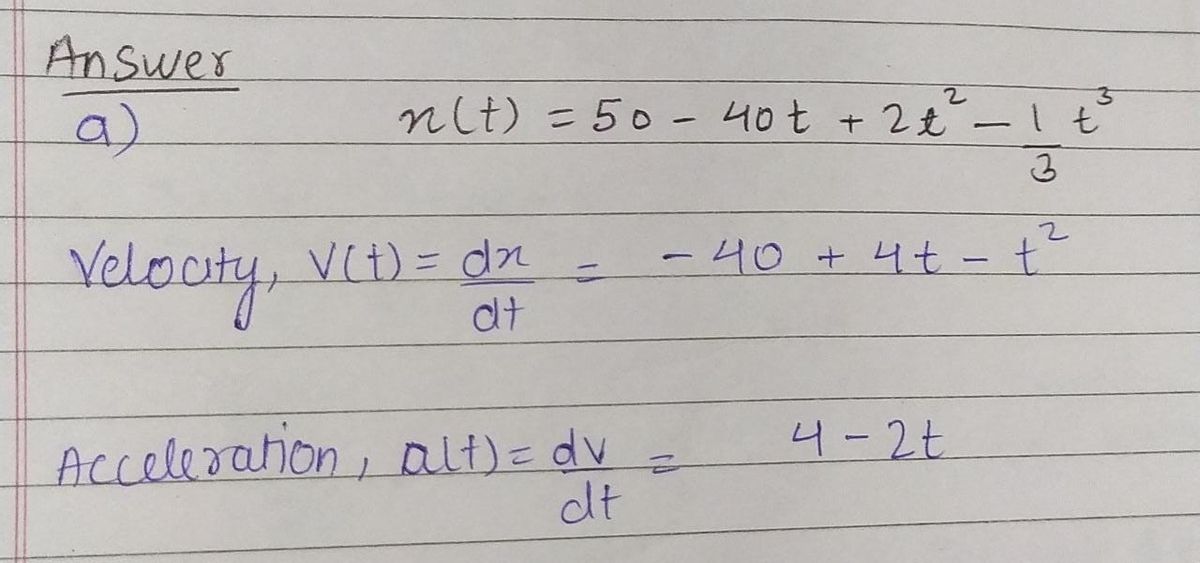 Answer
a) x(t) = 50 - 40t + 2t² - 1/3 t³
Velocity, V(t) = dx/dt = - 40 + 4t - t²
Acceleration, a(t) = dv/dt = 4 - 2t